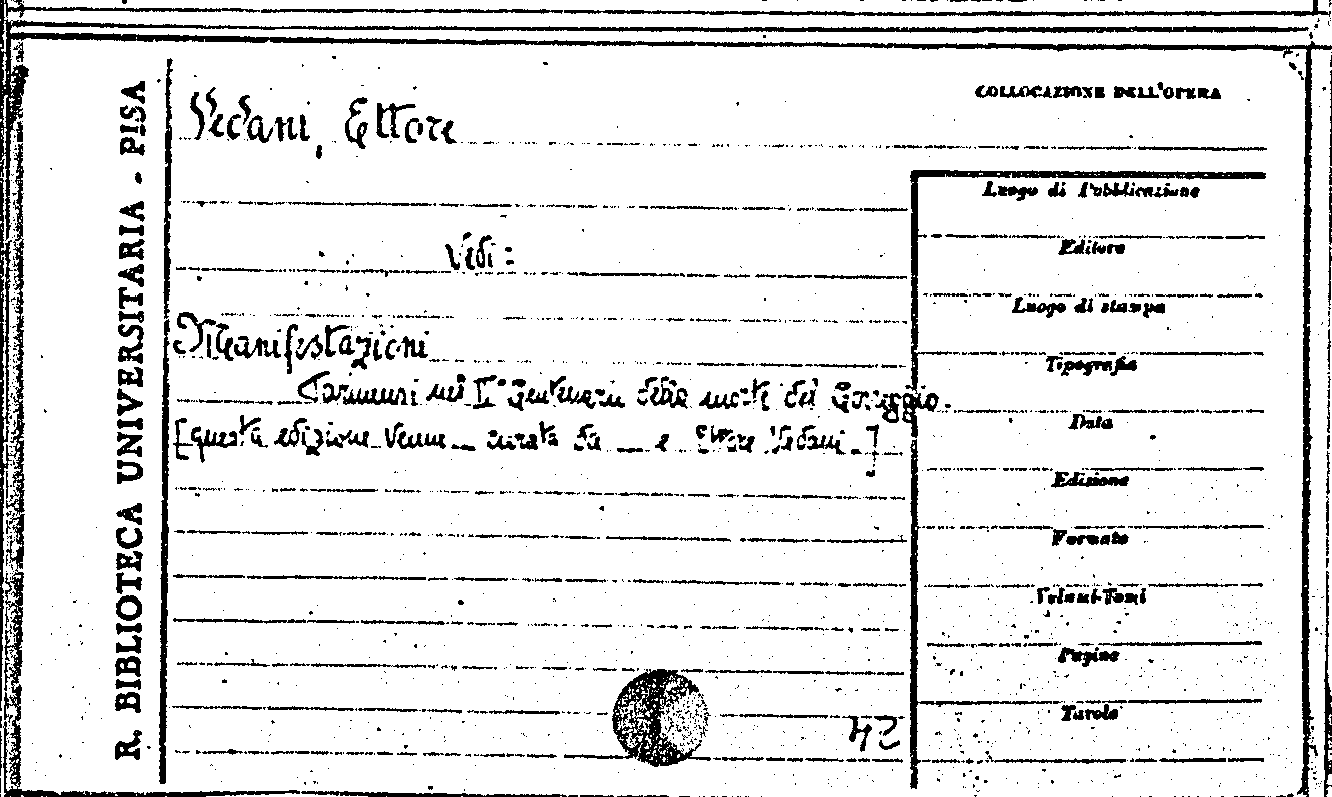 R. BIBLIOTECA UNIVERSITARIA - PISA
COLLOCAZIONE DELL'OPERA
Vedani, Ettore
Vedi:
Manifestazioni
Parmensi nel IV° Centenario della morte del Correggio.
[questa edizione venne ... curata da ... e Ettore Vedani.]
Luogo di Pubblicazione
Editore
Luogo di stampa
Tipografia
Data
Edizione
Formato
Volumi-Tomi
Pagine
Tavole
42